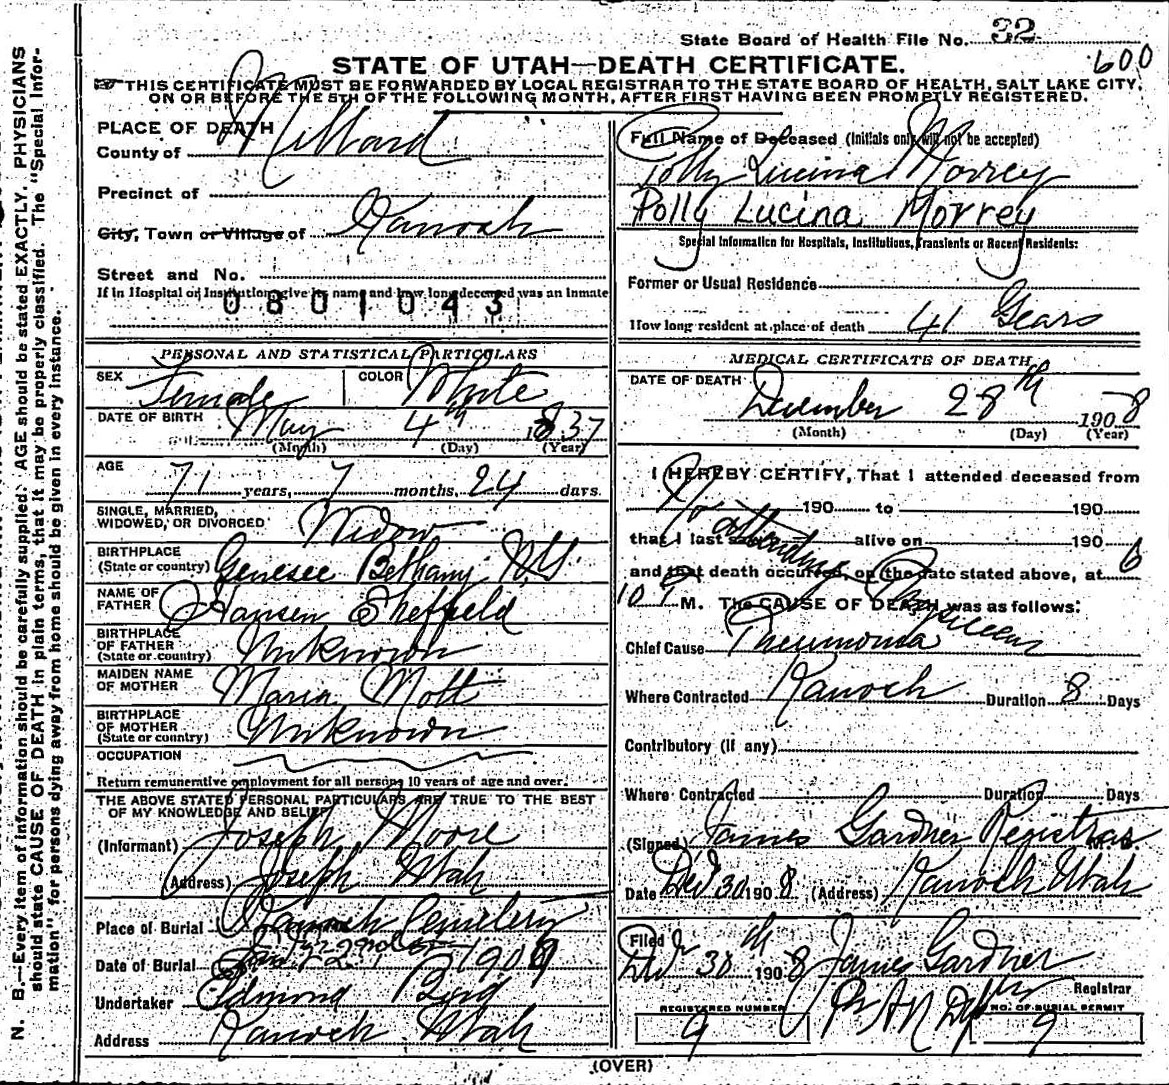 State Board of Health File No. 32
600
STATE OF UTAH—DEATH CERTIFICATE.
THIS CERTIFICATE MUST BE FORWARDED BY LOCAL REGISTRAR TO THE STATE BOARD OF HEALTH, SALT LAKE CITY,
ON OR BEFORE THE 5TH OF THE FOLLOWING MONTH, AFTER FIRST HAVING BEEN PROMPTLY REGISTERED.
PLACE OF DEATH
County of Millard
Precinct of
City, Town or Village of Kanosh
Street and No.
If in Hospital or Institution give its name and how long deceased was an inmate
0801043
PERSONAL AND STATISTICAL PARTICULARS
SEX Female COLOR White
DATE OF BIRTH May 4th 1837
(Month) (Day) (Year)
AGE
71 years, 7 months, 24 days.
SINGLE, MARRIED,
WIDOWED, OR DIVORCED Widow
BIRTHPLACE
(State or country) Genesee Bethany N.Y.
NAME OF
FATHER Hansen Sheffield
BIRTHPLACE
OF FATHER
(State or country) Unknown
MAIDEN NAME
OF MOTHER Maria Mott
BIRTHPLACE
OF MOTHER
(State or country) Unknown
OCCUPATION
Return remunerative employment for all persons 10 years of age and over.
THE ABOVE STATED PERSONAL PARTICULARS ARE TRUE TO THE BEST
OF MY KNOWLEDGE AND BELIEF
(Informant) Joseph Moore
(Address) Joseph Utah
Place of Burial Kanosh Cemetery
Date of Burial 1909
Undertaker Edmond Bird
Address Kanosh Utah
Full Name of Deceased (Initials only will not be accepted)
Polly Lucina Morrey
Polly Lucina Morrey
Special Information for Hospitals, Institutions, Transients or Recent Residents:
Former or Usual Residence
How long resident at place of death 41 Years
MEDICAL CERTIFICATE OF DEATH
DATE OF DEATH December 28th 1908
(Month) (Day) (Year)
I HEREBY CERTIFY, That I attended deceased from
No 190 to 190
that I last attending alive on 190
and that death occurred, on the date stated above, at 6
M. The CAUSE OF DEATH was as follows:
Physician
Chief Cause Pneumonia
Where Contracted Kanosh Duration 8 Days
Contributory (if any)
Where Contracted Duration Days
(Signed) James Gardner Registrar M. D.
Date Dec 30 1908 (Address) Kanosh Utah
Filed
Dec 30th 1908 James Gardner
Registrar
REGISTERED NUMBER NO. OF BURIAL PERMIT
9 9
(OVER)
N. B.—Every item of information should be carefully supplied. AGE should be stated EXACTLY. PHYSICIANS
should state CAUSE OF DEATH in plain terms, that it may be properly classified. The "Special Infor-
mation" for persons dying away from home should be given in every instance.